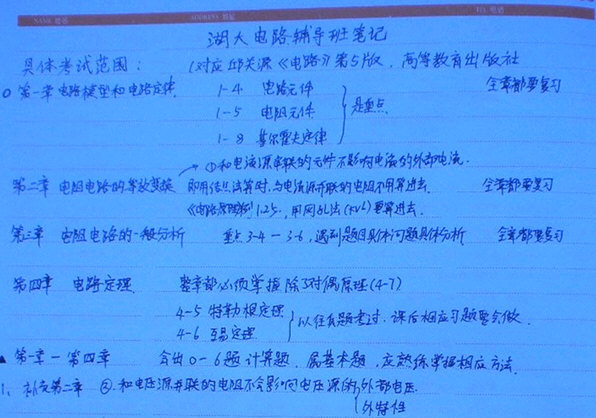 NAME 姓名 ADDRESS 地址 TEL 电话
湖大电路辅导班笔记
具体考试范围: (对应邱关源《电路》第5版,高等教育出版社
第一章 电路模型和电路定律 1-4 电路元件 全章都要复习
1-5 电阻元件 是重点
1-8 基尔霍夫定律
①和电流源串联的元件不影响电流的外部电流.
第二章 电阻电路的等效变换 即用结点法算时,与电流源串联的电阻不用算进去. 全章都要复习
1.25, 用网孔法(KVL)要算进去.
第三章 电阻电路的一般分析 重点3-4 — 3-6, 遇到题目具体问题具体分析 全章都要复习
第四章 电路定理 整章都必须掌握除了对偶原理(4-7)
4-5 特勒根定理
以往真题考过,课后相应习题要会做.
4-6 互易定理
▲ 第一章 — 第四章 会出0-6题计算题,属基本题,应熟练掌握相应方法.
1、补充第二章 ②.和电压源并联的电阻不会影响电压源的外部电压.
外特性